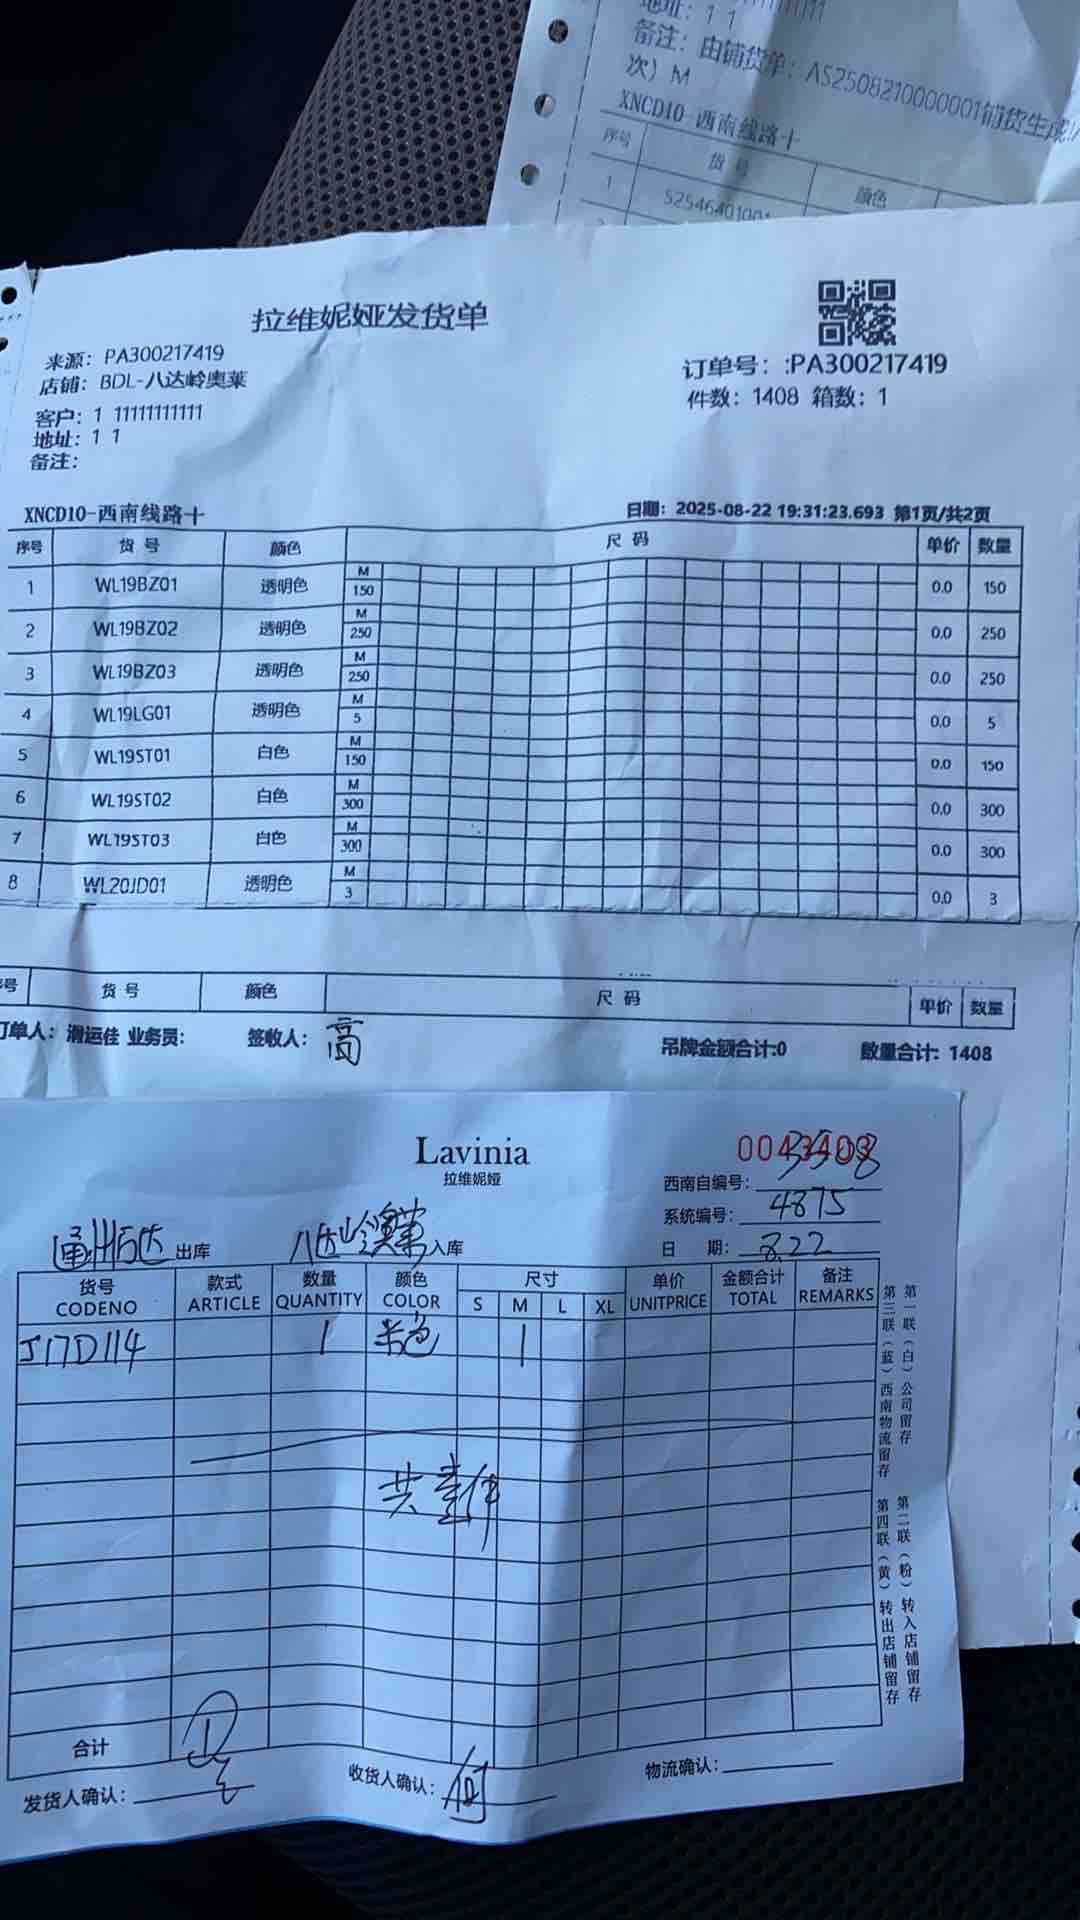 地址: 1 1
备注: 由铺货单: AS2508210000001销货生成
次) M
XNCD10-西南线路十
序号 货 号 颜色
1
拉维妮娅发货单
来源: PA300217419
店铺: BDL-八达岭奥莱
客户: 1 11111111111
地址: 1 1
备注:
订单号: :PA300217419
件数: 1408 箱数: 1
XNCD10-西南线路十
日期: 2025-08-22 19:31:23.693 第1页/共2页
序号 货 号 颜色 尺 码 单价 数量
1 WL19BZ01 透明色 M 150 0.0 150
2 WL19BZ02 透明色 M 250 0.0 250
3 WL19BZ03 透明色 M 250 0.0 250
4 WL19LG01 透明色 M 5 0.0 5
5 WL19ST01 白色 M 150 0.0 150
6 WL19ST02 白色 M 300 0.0 300
7 WL19ST03 白色 M 300 0.0 300
8 WL20JD01 透明色 M 3 0.0 3
号 货 号 颜色 尺 码 单价 数量
订单人: 运佳 业务员: 签收人: 高 吊牌金额合计:0 数量合计: 1408
Lavinia
拉维妮娅
西南自编号: 3508
系统编号: 4875
日 期: 8.22
通州万达 出库 八达岭奥莱 入库
货号 款式 数量 颜色 尺寸 单价 金额合计 备注
CODENO ARTICLE QUANTITY COLOR S M L XL UNITPRICE TOTAL REMARKS
J17D114 1 米色 1
共壹件
合计 1
发货人确认: 收货人确认: 何 物流确认:
第一联(白)公司留存
第二联(粉)转入店铺留存
第三联(蓝)西南物流留存
第四联(黄)转出店铺留存